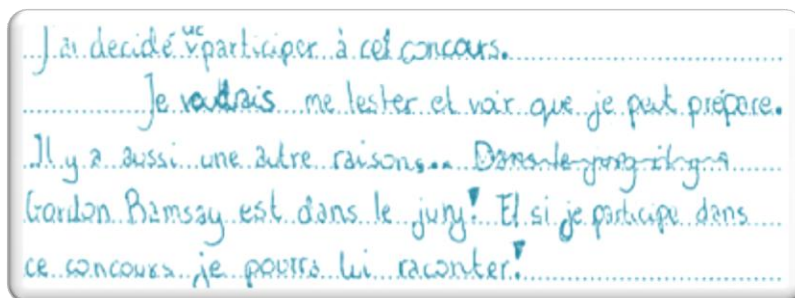 J'ai decidé uc participer à cet concours.
Je voudrais me tester et voir que je peut prépare.
Il y a aussi une autre raisons... Dans le jury il y a
Gordon Ramsay est dans le jury! Et si je participe dans
ce concours je pourra lui raconter!